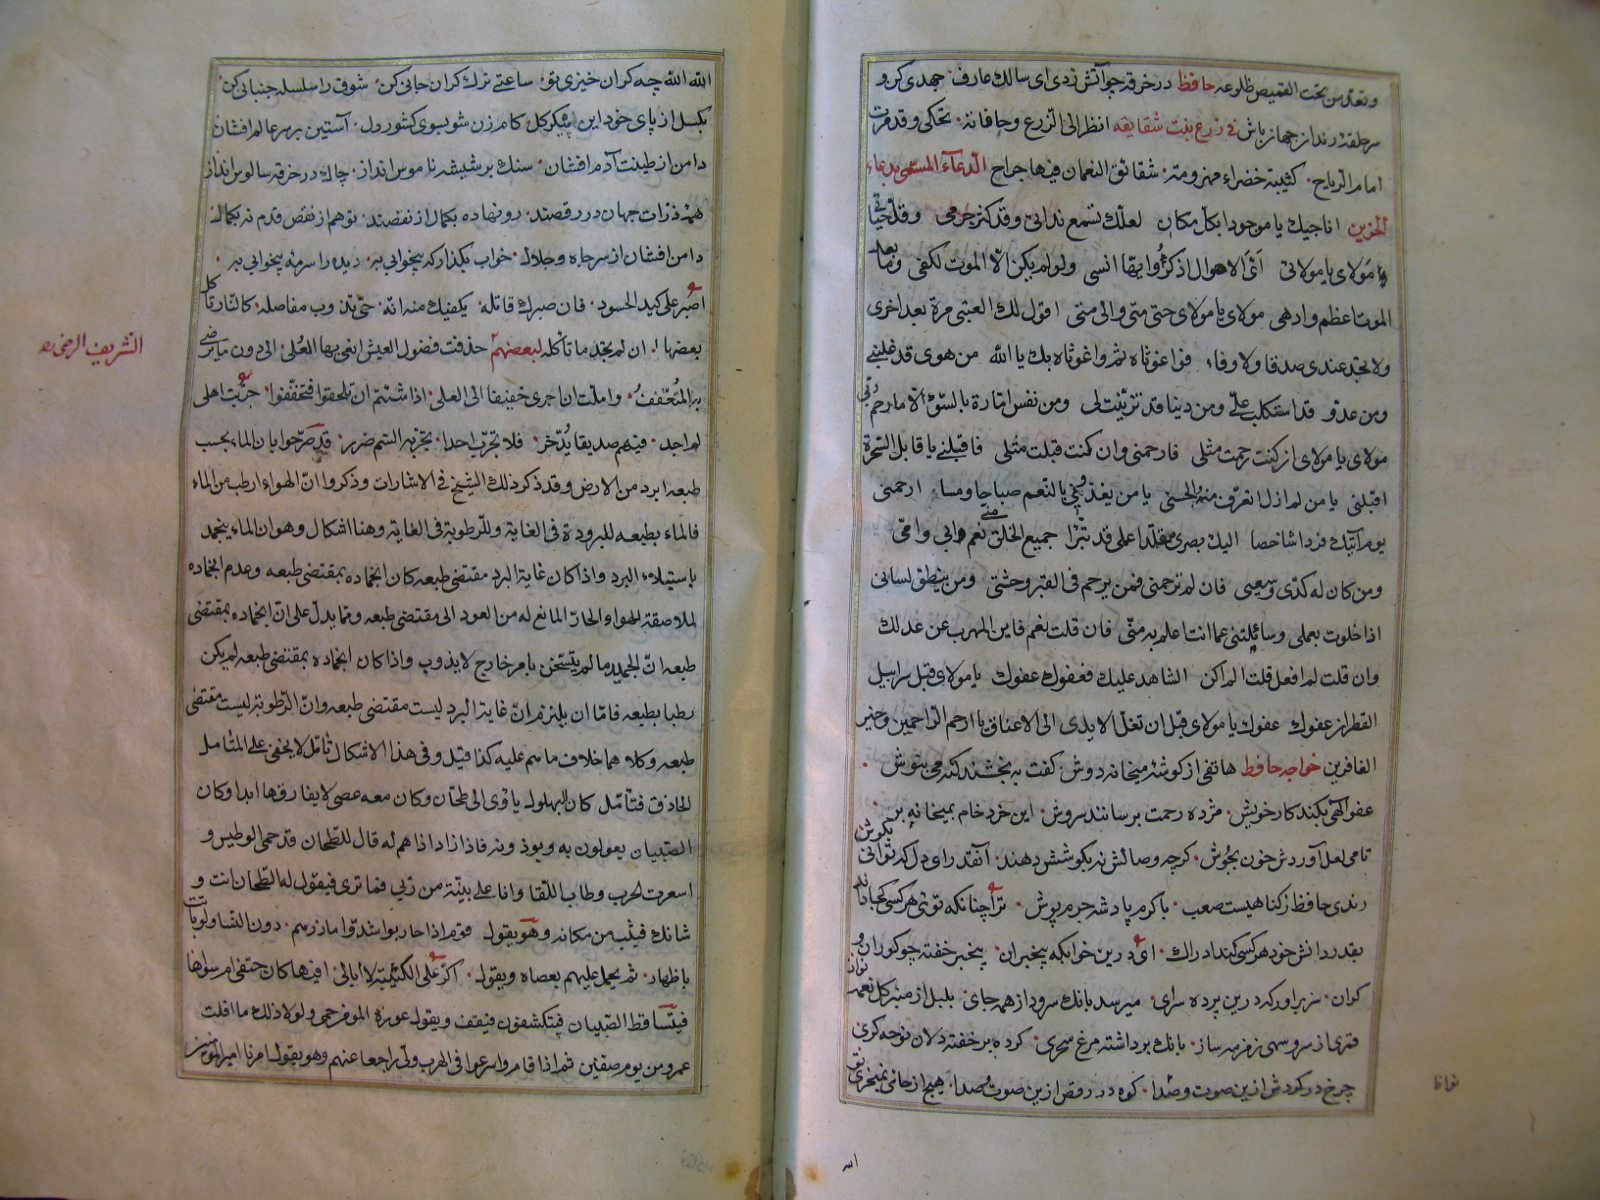 وتعد من تحت القميص ظلوعه حافظ در خرقه چو آتش زدی ای سالک عارف جهدی کن و
سر حلقه رندان جهان باش فی زرع بنت شقایقه انظر الی الزرع وجاماته تحکی وقد مرت
امام الریاح کتیبة خضراء مهزومة شقائق النعمان فیها جراح الدعآء المسمی بدعاء
الحزین اناجیک یا موجودا بکل مکان لعلک تسمع ندائی وقد کثر جرمی وقل حیائی
مولای یا مولای ای الاهوال اذکر وایها انسی ولو لم یکن الا الموت لکفی وما بعد
الموت اعظم وادهی مولای یا مولای حتی متی والی متی اقول لک العتبی مرة بعد اخری
ولا تجد عندی صدقا ولا وفاء فوا غوثاه ثم واغوثاه بک یا الله من هوی قد غلبنی
ومن عدو قد استکلب علی ومن دنیا قد تزینت لی ومن نفس امارة بالسوء الا ما رحم ربی
مولای یا مولای ان کنت رحمت مثلی فارحمنی وان کنت قبلت مثلی فاقبلنی یا قابل السحرة
اقبلنی یا من لم ازل اتعرف منه الحسنی یا من یغذینی بالنعم صباحا ومساء ارحمنی
یوم آتیک فردا شاخصا الیک بصری مقلدا عملی قد تبرا جمیع الخلق منی نعم وابی وامی
ومن کان له کدی وسعیی فان لم ترحمنی فمن یرحم فی القبر وحشتی ومن ینطق لسانی
اذا خلوت بعملی وسائلتنی عما انت اعلم به منی فان قلت نعم فاین المهرب من عدلک
وان قلت لم افعل قلت الم اکن الشاهد علیک فعفوک عفوک یا مولای قبل سرابیل
القطران عفوک عفوک یا مولای قبل ان تغل الایدی الی الاعناق یا ارحم الراحمین وخیر
الغافرین خواجه حافظ هاتفی از گوشه میخانه دوش گفت ببخشند گنه می بنوش
عفو الهی بکند کار خویش مژده رحمت برسانند سروش این خرد خام بمیخانه بر
تا می لعل آوردش خون بجوش گرچه وصالش نه بکوشش دهند آنقدر ای دل که توانی بکوش
رندی حافظ نه گناهیست صعب با کرم پادشه جرم پوش ترا چنانکه توئی هر کسی کجا داند
بقدر دانش خود هر کسی کند ادراک ای درین خوابگه بیخبران بیخبر خفته چو کوران و
کران سر براور که درین پرده سرای میرسد بانک سرود از همه جای بلبل از منبر گل نغمه نواز
قمری از سرو سهی زمزمه ساز بانک برداشته مرغ سحری کرده بر خفته دلان نوحه گری
چرخ در گردش ازین صوت وصدا کوه در رقص ازین صوت وصدا هیچ از جای نمیخیزی تو
الله
الله الله چه گران خیزی تو ساعتی ترک گران جانی کن شوق را سلسله جنبانی کن
بگسل از پای خود این گل گام زن شو بسوی کشور دل آستین بر سر عالم افشان
دامن از طینت آدم افشان سنک بر شیشه ناموس انداز چاک در خرقه سالوس انداز
همه ذرات جهان در رقصند رو نهاده بکمال از نقصند تو هم از نقص قدم نه بکمال
دامن افشان از سر جاه و جلال خواب بگذار که بیخوابی به دیده را سرمه بیخوابی به
اصبر علی کید الحسود فان صبرک قاتله یکفیک منه انه حتی تذوب مفاصله کالنار تاکل
بعضها ان لم تجد ما تاکله لبعضهم حذفت فضول العیش ابغی بها العلی الی دون ما یرضی
به المتعفف واملت ان اجری خفیفا الی العلی اذا شئتم ان تلحقوا فتخففوا جربت اهلی
لم اجد فیهم صدیقا یدخر فلا تجرب احدا تجربة السم ضرر قد صرحوا بان الماء بحسب
طبعه ابرد من الارض وقد ذکر ذلک الشیخ فی الاشارات وذکروا ان الهواء ارطب من الماء
فالماء بطبعه للبرودة فی الغایة وللرطوبة فی الغایة وهنا اشکال وهو ان الماء ینجمد
باستیلاء البرد واذا کان غایة البرد مقتضی طبعه کان انجماده بمقتضی طبعه وعدم انجماده
لملاصقة الهواء الحار المانع له من العود الی مقتضی طبعه ومما یدل علی ان انجماده بمقتضی
طبعه ان الجمید ما لم یتسخن بامر خارج لا یذوب واذا کان انجماده بمقتضی طبعه لم یکن
رطبا بطبعه فاما ان یلتزم ان غایة البرد لیست مقتضی طبعه وان الرطوبة لیست مقتضی
طبعه وکلاهما خلاف ما هم علیه کذا قیل وفی هذا الاشکال تامل لا یخفی علی المتامل
الحاذق فتامل کان البهلول یاوی الی طحان وکان معه عصی لا یفارقها ابدا وکان
الصبیان یعولون به ویوذونه فاذا زاد اذاهم له قال للطحان قد حمی الوطیس و
اسعرت الحرب وطاب اللقا وانا علی بینة من ربی فما تری فیقول له الطحان انت و
شانک فیثب من مکانه وهو یقول قوم اذا حاربوا شدوا مازرهم دون النسا ولو باتت
باطهار ثم یحمل علیهم بعصاه ویقول اکر علی الکتیبة لا ابالی افیها کان حتفی ام سواها
فیتساقط الصبیان فیتکشفون فیقف ویقول عورة المومن حمی ولولا ذلک ما افلت
عمرو من یوم صفین ثم اذا قاموا واسرعوا فی الهرب ولی راجعا عنهم وهو یقول امرنا امیر المومنین
الشریف الرضی ره